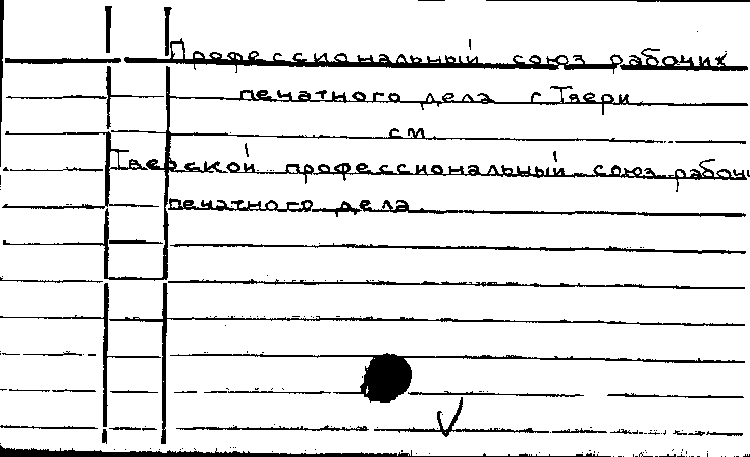 Профессиональный союз рабочих
печатного дела г. Твери
см.
Тверской профессиональный союз рабочи
печатного дела.